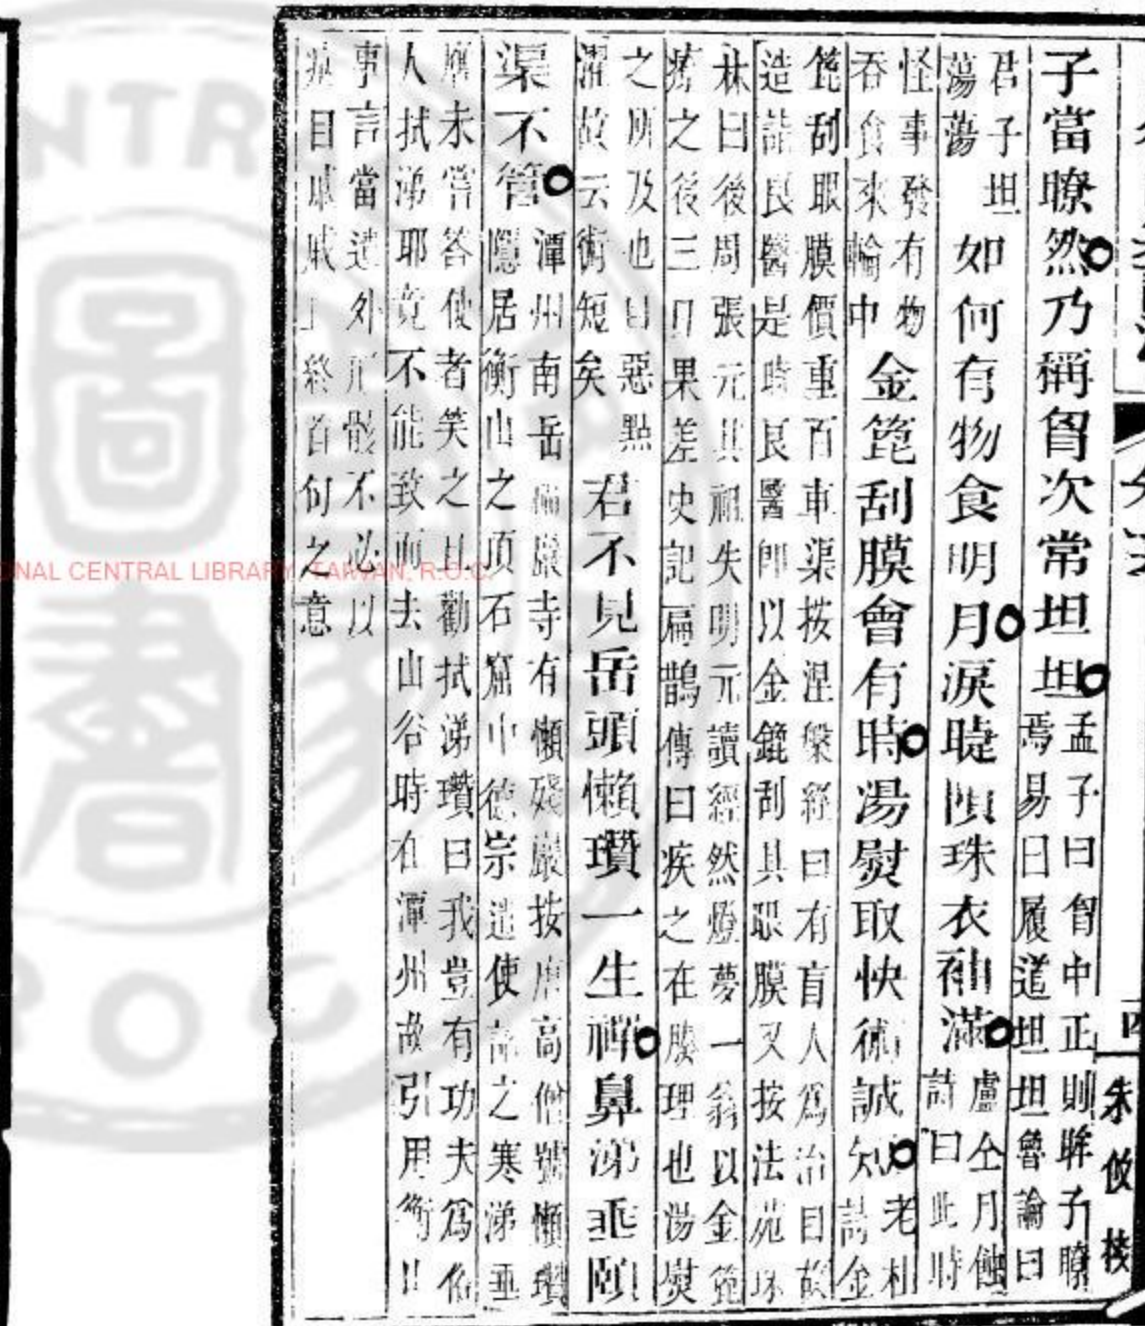 子當瞭然乃稱胷次常坦坦
孟子曰胷中正則眸子瞭
焉易曰履道坦坦魯論曰
君子坦
蕩蕩
如何有物食明月淚睫隕珠衣袖滿
盧仝月蝕
詩曰此時
怪事發有物
吞食來輪中
金箆刮膜會有時湯熨取快術誠短
老杜
詩金
箆刮眼膜價重百車渠按涅槃經曰有盲人爲治目故
造詣良醫是時良醫卽以金錍刮其眼膜又按法苑珠
林曰後周張元其祖失明元讀經然燈夢一翁以金箆
療之後三日果差史記扁鵲傳曰疾之在腠理也湯熨
之所及也日惡點
濯故云術短矣
君不見岳頭懶瓚一生禪鼻涕垂頤
渠不管
潭州南岳寺有懶殘巖按唐高僧號懶瓚
隱居衡山之頂石窟中德宗遣使詔之寒涕垂
膺未嘗答使者笑之且勸拭涕瓚曰我豈有功夫爲俗
人拭涕耶竟不能致而去山谷時在潭州故引用衡山
事言當遺外形骸不必以
病目慼慼終首句之意
NATIONAL CENTRAL LIBRARY, TAIWAN, R.O.C.
四
朱攸校